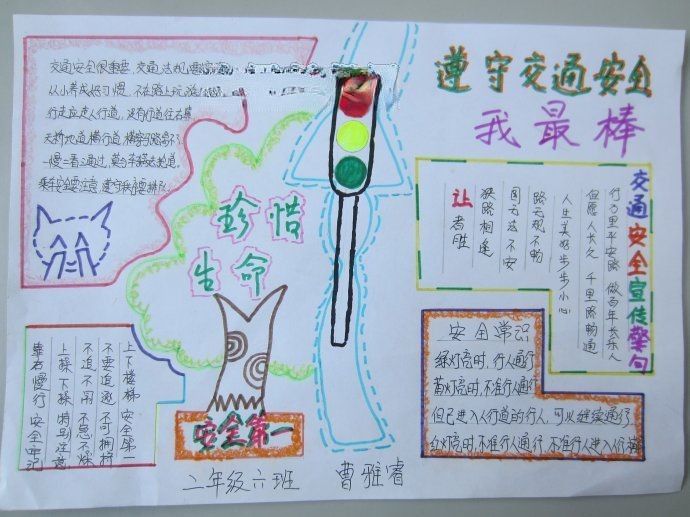 遵守交通安全
我最棒
交通安全很重要，交通法规
从小养成好习惯，不在路上玩
行走应走人行道，没有行道往右靠
天桥地道横行道，横穿马路离不了
一慢二看三通过，莫
乘车安全要注意，遵守秩序要排队
珍惜
生命
安全第一
交通安全宣传警句
行万里平安路 做百年长乐人
但愿人长久 千里路畅通
人生美好步步小心
路无规不畅
国无法不安
狭路相逢
让者胜
安全常识
绿灯亮时，行人通行
黄灯亮时，不准行人通行
但已进入人行道的行人，可以继续通行
红灯亮时，不准行人通行，不准行人进入人行
上下楼梯 安全第一
不要追逃 不可拥挤
不追不闹 不急不燥
上操下操 特别注意
靠右慢行 安全牢记
二年级六班 曹雅睿